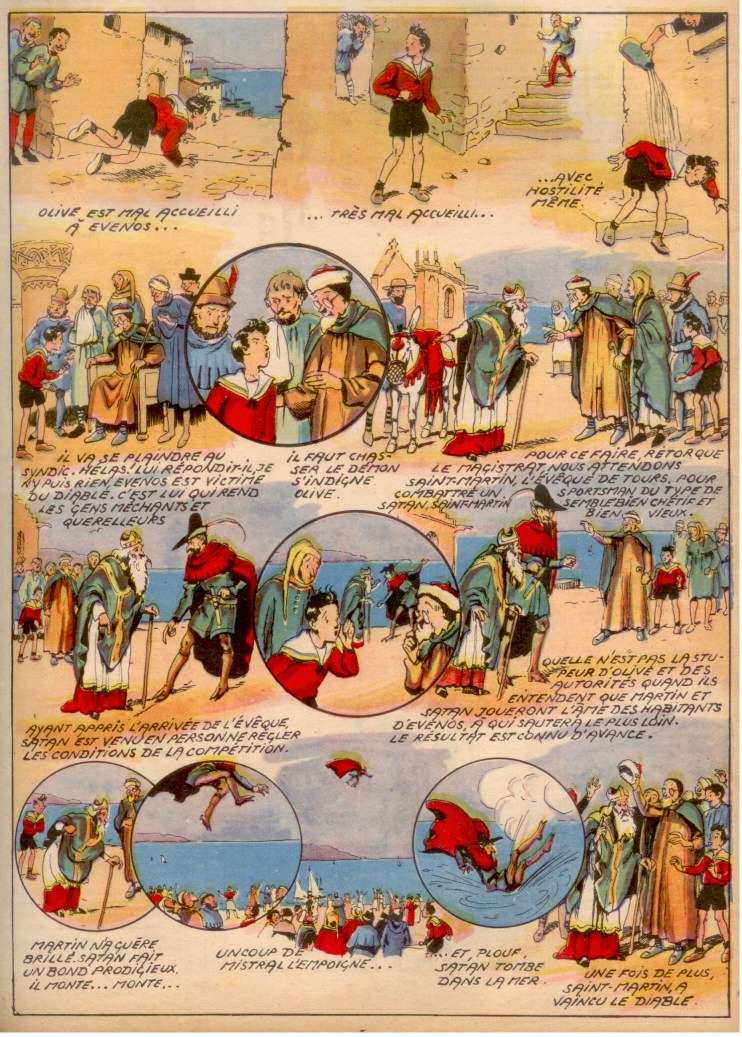 OLIVE EST MAL ACCUEILLI
À EVENOS...
... TRÈS MAL ACCUEILLI...
...AVEC
HOSTILITÉ
MÊME.
IL VA SE PLAINDRE AU
SYNDIC. HÉLAS! LUI RÉPOND-IT-IL, JE
N'Y PUIS RIEN, EVENOS EST VICTIME
DU DIABLE. C'EST LUI QUI REND
LES GENS MÉCHANTS ET
QUERELLEURS
IL FAUT CHAS-
SER LE DÉMON
S'INDIGNE
OLIVE.
POUR CE FAIRE, RETORQUE
LE MAGISTRAT, NOUS ATTENDONS
SAINT-MARTIN, L'ÉVÊQUE DE TOURS, POUR
COMBATTRE UN SPORTSMAN DU TYPE DE
SATAN, SAINT-MARTIN SEMBLE BIEN CHÉTIF ET
BIEN VIEUX.
AYANT APPRIS L'ARRIVÉE DE L'ÉVÊQUE,
SATAN EST VENU EN PERSONNE RÉGLER
LES CONDITIONS DE LA COMPÉTITION.
QUELLE N'EST PAS LA STU-
PEUR D'OLIVE ET DES
AUTORITÉS QUAND ILS
ENTENDENT QUE MARTIN ET
SATAN JOUERONT L'ÂME DES HABITANTS
D'EVENOS, À QUI SAUTERA LE PLUS LOIN.
LE RÉSULTAT EST CONNU D'AVANCE.
MARTIN N'A GUÈRE
BRILLÉ. SATAN FAIT
UN BOND PRODIGIEUX.
IL MONTE... MONTE...
UN COUP DE
MISTRAL L'EMPOIGNE...
...ET, PLOUF,
SATAN TOMBE
DANS LA MER.
UNE FOIS DE PLUS,
SAINT-MARTIN, A
VAINCU LE DIABLE.